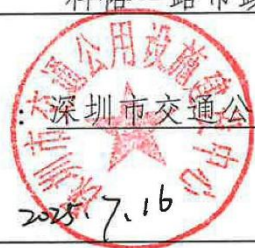 路市政
：深圳市交通公
深圳市交通公用设施建设中心
2025.7.16